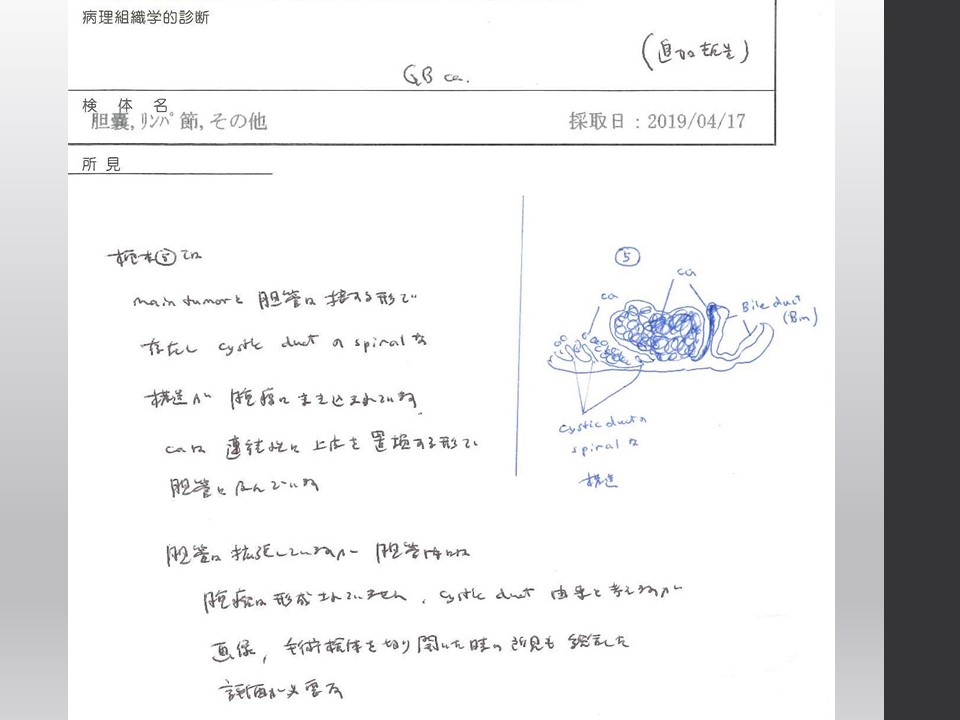 病理組織学的診断
GB ca.
検体名
胆嚢,リンパ節,その他
採取日:2019/04/17
所見
標本⑤では
main tumorと胆管は接する形で
存在し cystic duct の spiral な
構造が腫瘍にまき込まれています
caは連続性に上皮を置換する形で
胆管に及んでいます
胆管は拡張していますが胆管内には
腫瘤は形成されていません. cystic duct 由来と考えますが
画像,手術検体を切り開いた時の所見も総合した
評価が必要です
⑤
ca
ca
Bile duct
(Bm)
cystic ductの
spiral な
構造